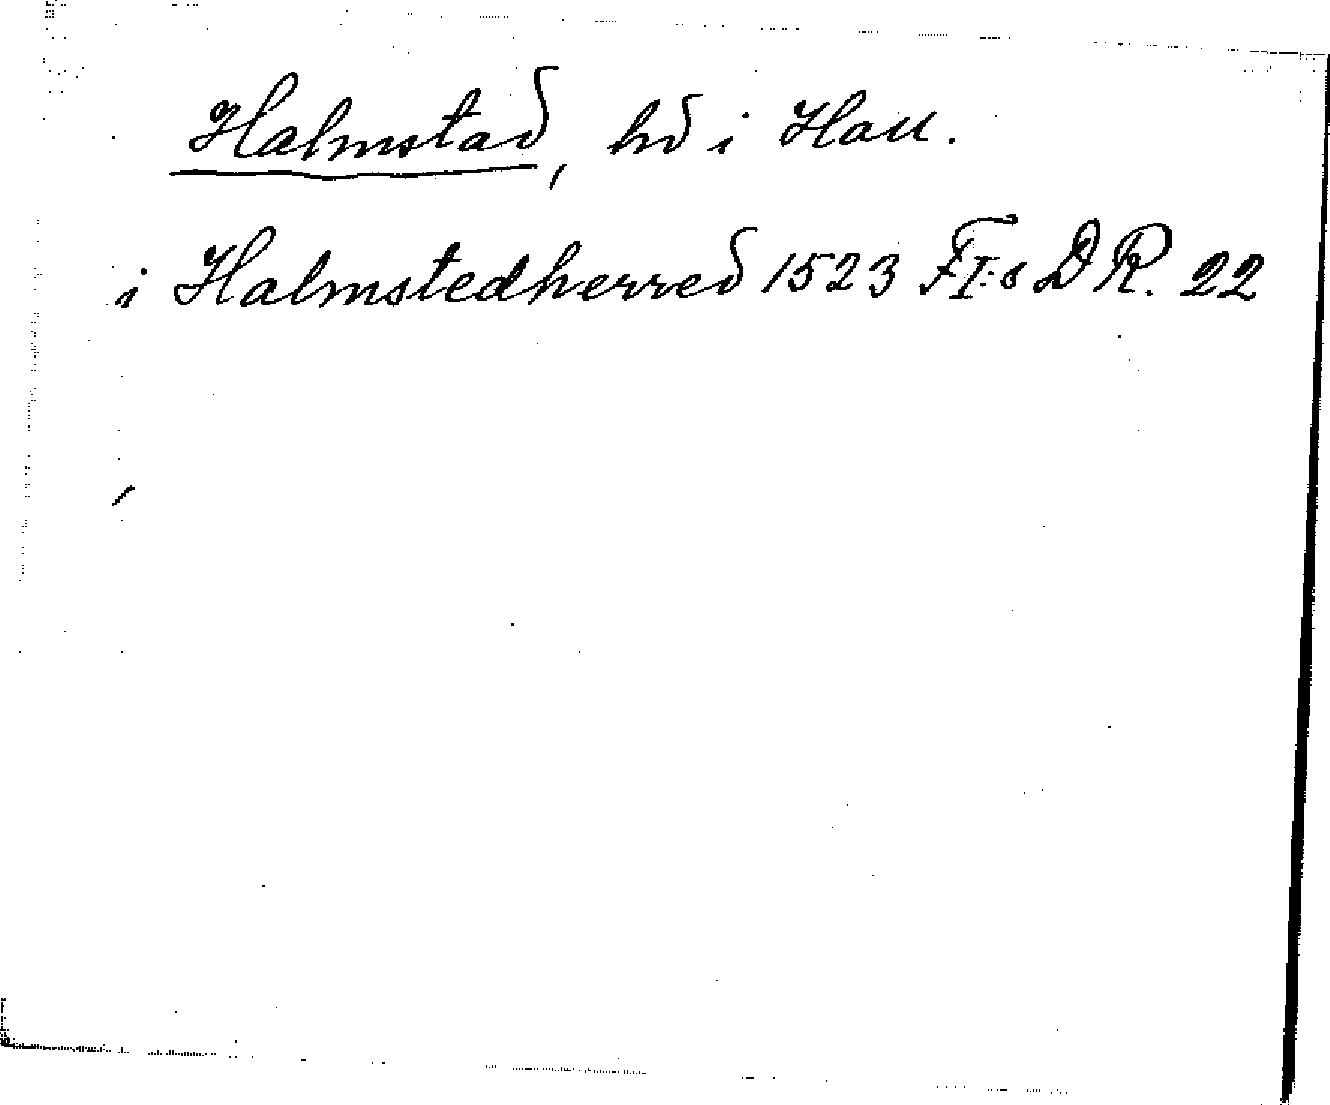 Halmstad, hd i Hall.
i Halmstedherred 1523 FI:s DR. 22